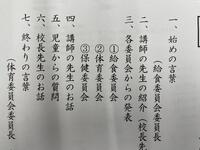 一、始めの言葉
（給食委員会委員長
二、講師の先生の紹介（校長先
三、各委員会からの発表
①給食委員会
②体育委員会
③保健委員会
四、講師の先生のお話
五、児童からの質問
六、校長先生のお話
七、終わりの言葉
（体育委員会委員長